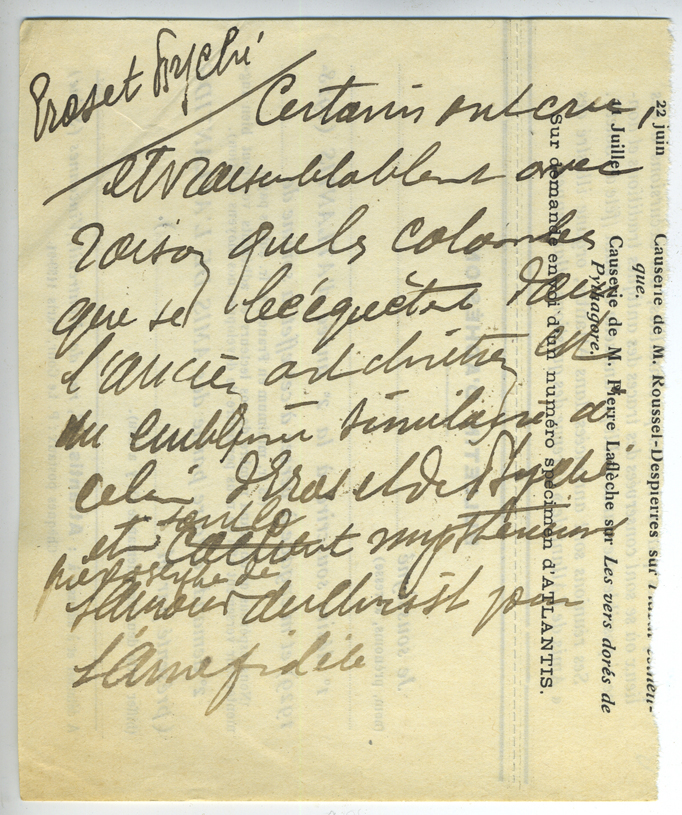 Eros et Psyché
Certains ont cru,
et vraisemblablement avec
raison que les colombes
que se becquètent dans
l'ancien art chrétien est
un emblème similaire à
celui d'Eros et de Psyché
et sont le
mystérieux
de
l'amour du Christ pour
l'âme fidèle
22 juin Causerie de M. Roussel-Despierres sur
que.
Juillet Causerie de M. Pierre Laflèche sur Les vers dorés de
Pythagore.
Sur demande envoi d'un numéro spécimen d'ATLANTIS.